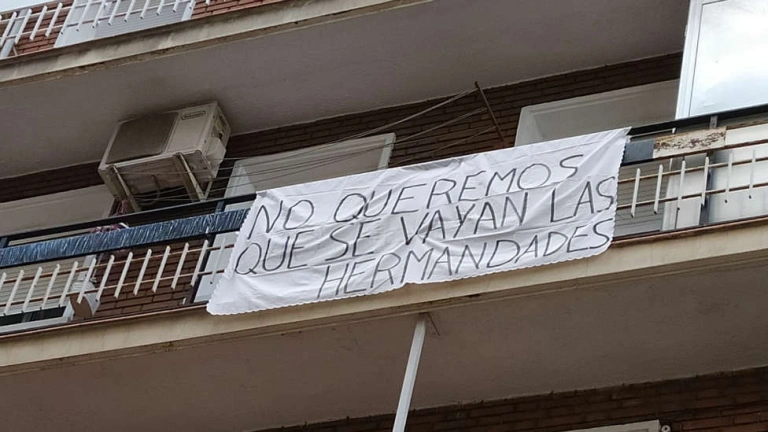 NO QUEREMOS
QUE SE VAYAN LAS
HERMANDADES